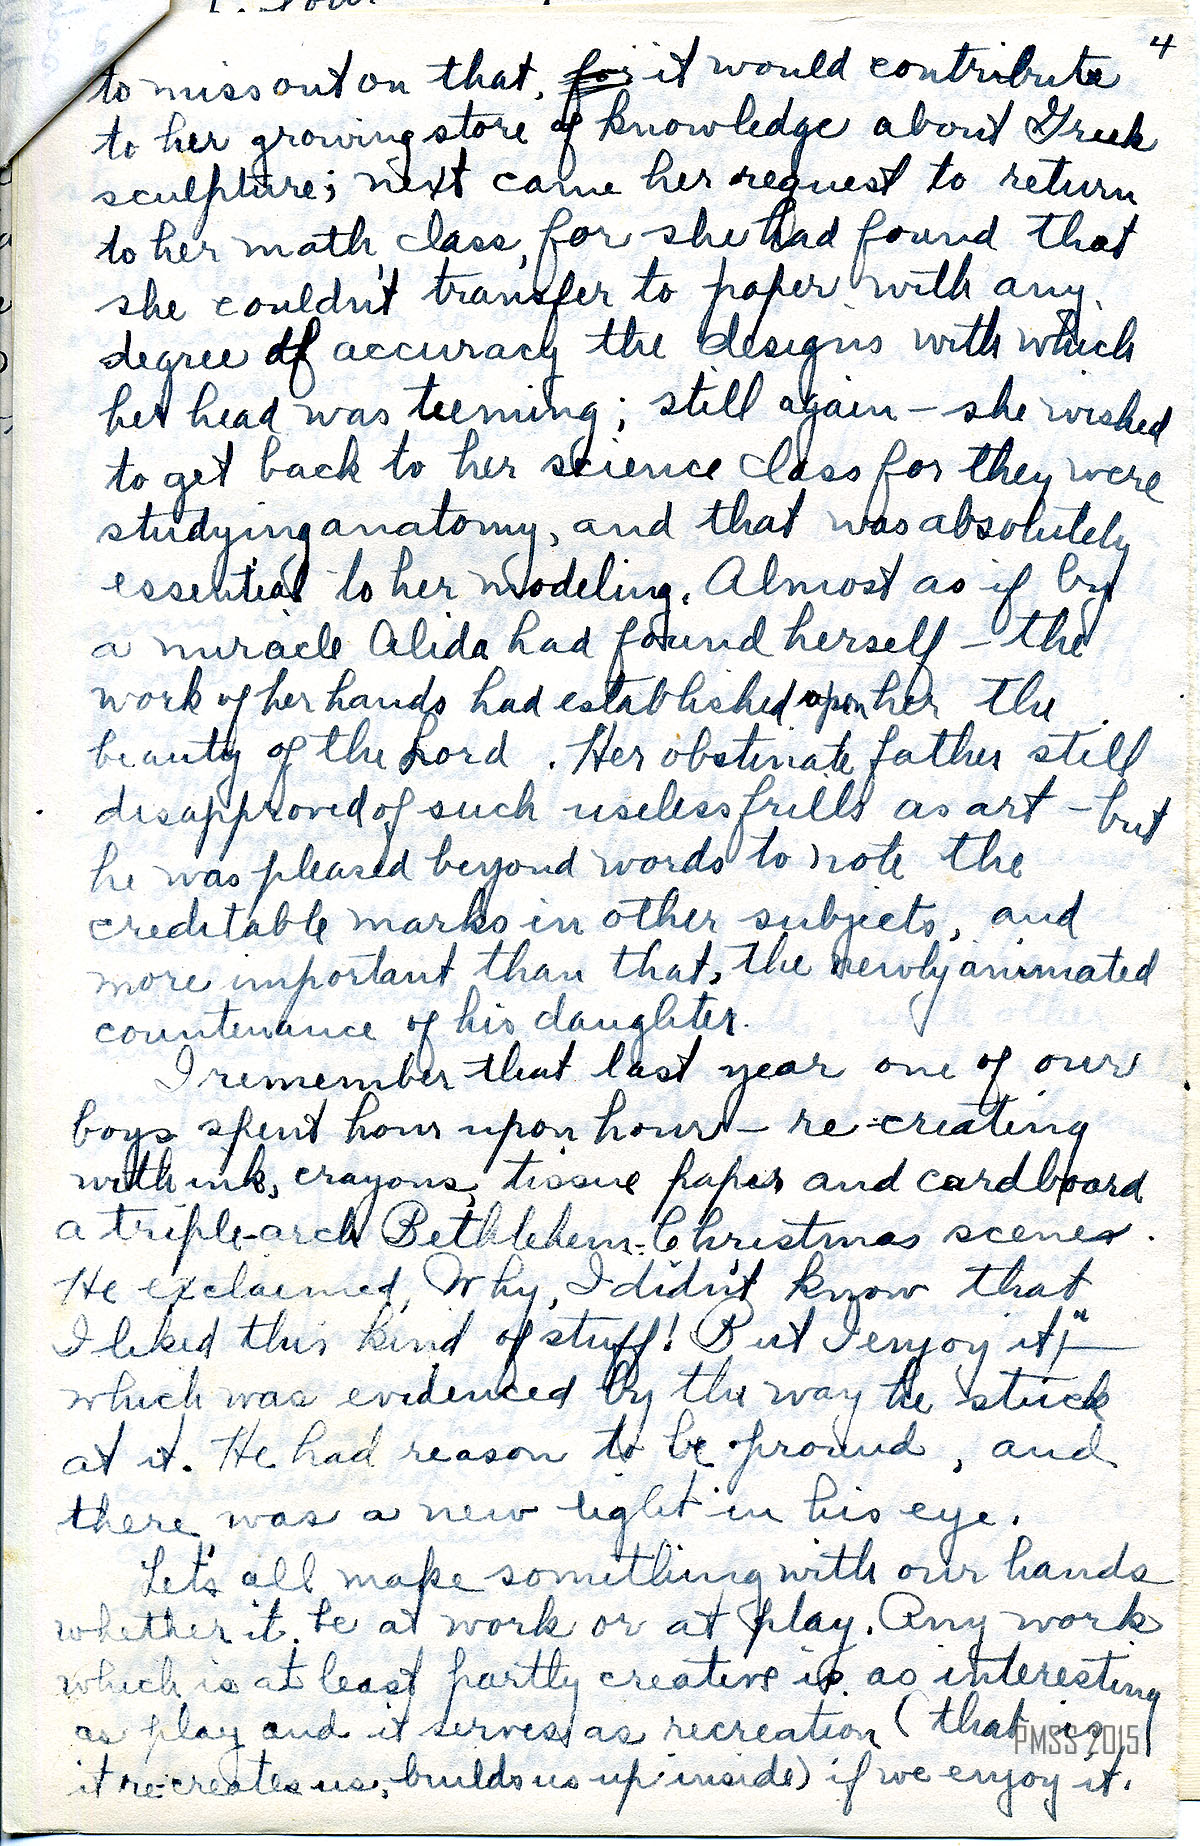 4
to miss out on that, for it would contribute
to her growing store of knowledge about Greek
sculpture; next came her request to return
to her math class, for she had found that
she couldn't transfer to paper with any
degree of accuracy the designs with which
her head was teeming; still again – she wished
to get back to her science class for they were
studying anatomy, and that was absolutely
essential to her modeling. Almost as if by
a miracle Alida had found herself – the
work of her hands had established upon her the
beauty of the Lord. Her obstinate father still
disapproved of such useless frills as art – but
he was pleased beyond words to note the
creditable marks in other subjects, and
more important than that, the newly animated
countenance of his daughter.
I remember that last year one of our
boys spent hour upon hour – re-creating
with ink, crayons, tissue paper and cardboard
a triple-arch Bethlehem-Christmas scene.
He exclaimed, Why, I didn't know that
I liked this kind of stuff! But I enjoy it!" –
which was evidenced by the way he stuck
at it. He had reason to be proud, and
there was a new light in his eye.
Let's all make something with our hands
whether it be at work or at play. Any work
which is at least partly creative is as interesting
as play and it serves as recreation (that is,
it re-creates us, builds us up inside) if we enjoy it.
PMSS 2015